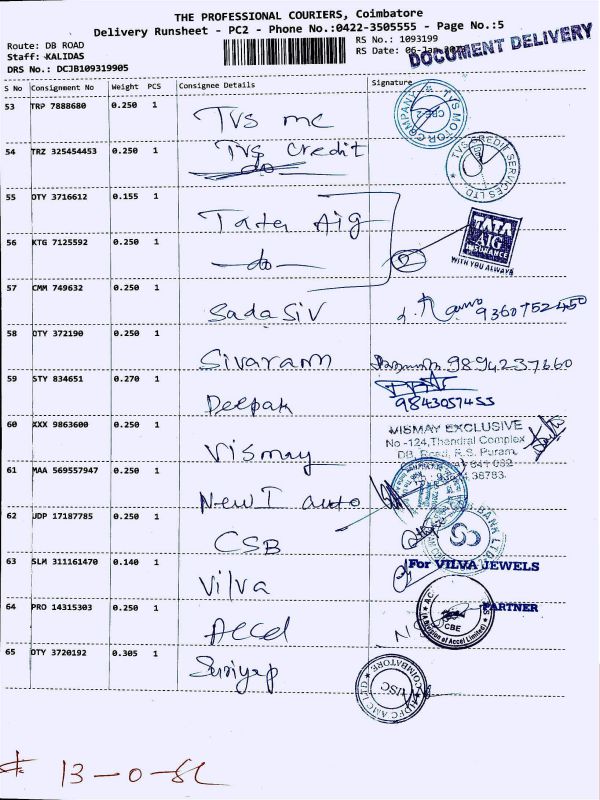 THE PROFESSIONAL COURIERS, Coimbatore
Delivery Runsheet - PC2 - Phone No.:0422-3505555 - Page No.:5
Route: DB ROAD
RS No.: 1093199
Staff: KALIDAS
RS Date: 06-Jan
DOCUMENT DELIVERY
DRS No.: DCJB109319905
S No Consignment No Weight PCS Consignee Details Signature
53 TRP 7888680 0.250 1 TVS mc
TVS MOTOR COMPANY
CBE-2
54 TRZ 325454453 0.250 1 TVS Credit
do
TVS CREDIT SERVICES LTD
55 OTY 3716612 0.155 1 Tata Aig
TATA AIG INSURANCE
WITH YOU ALWAYS
56 KTG 7125592 0.250 1 -do-
57 CMM 749632 0.250 1 SadaSiV
9360752450
58 OTY 372190 0.250 1 Sivaram
9894237660
59 STY 834651 0.270 1 Deepak
9843057455
60 XXX 9863600 0.250 1 Vismay
VISMAY EXCLUSIVE
No -124, Thendral Complex
DB. Road, R.S. Puram,
641 002
36783.
61 MAA 569557947 0.250 1 New I auto
62 UDP 17187785 0.250 1 CSB
BANK LTD
63 SLM 311161470 0.140 1 Vilva
For VILVA JEWELS
PARTNER
64 PRO 14315303 0.250 1 Accel
(A Division of Accel Limited)
CBE
65 OTY 3720192 0.305 1 Suriyap
HDFC AMC LTD
COIMBATORE
USC
13-0-SL